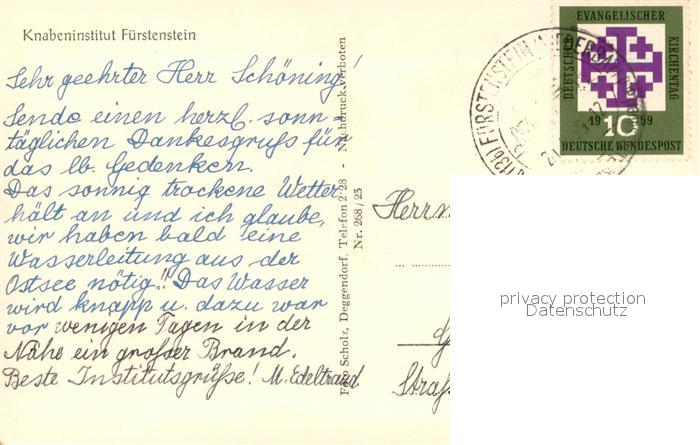 Knabeninstitut Fürstenstein
Sehr geehrter Herr Schöning!
Sende einen herzl. sonn-
täglichen Dankesgruß für
das lb. Gedenken.
Das sonnig trockene Wetter
hält an und ich glaube,
wir haben bald eine
Wasserleitung aus der
Ostsee nötig!! Das Wasser
wird knapp u. dazu war
vor wenigen Tagen in der
Nähe ein großer Brand.
Beste Institutsgrüße! M. Edeltraud
Foto Scholz, Deggendorf, Telefon 2 28 - Nachdruck verboten
Nr. 268/23
FÜRSTENSTEIN
DEUTSCHER EVANGELISCHER KIRCHENTAG
1959
10
DEUTSCHE BUNDESPOST
Herrn
Straß
privacy protection
Datenschutz